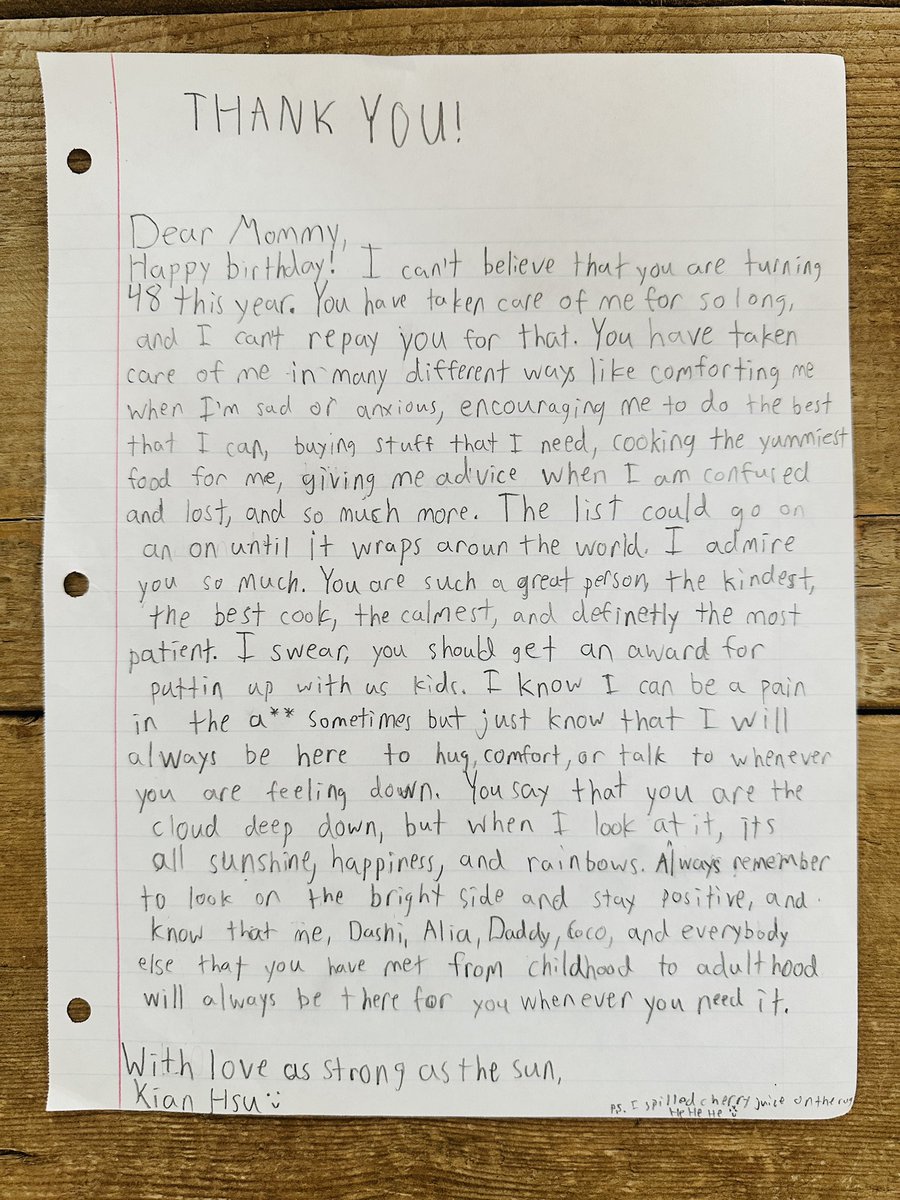 THANK YOU!
Dear Mommy,
Happy birthday! I can't believe that you are turning
48 this year. You have taken care of me for so long,
and I can't repay you for that. You have taken
care of me in many different ways like comforting me
when I'm sad or anxious, encouraging me to do the best
that I can, buying stuff that I need, cooking the yummiest
food for me, giving me advice when I am confused
and lost, and so much more. The list could go on
an on until it wraps aroun the world. I admire
you so much. You are such a great person, the kindest,
the best cook, the calmest, and definetly the most
patient. I swear, you should get an award for
puttin up with us kids. I know I can be a pain
in the a** sometimes but just know that I will
always be here to hug, comfort, or talk to whenever
you are feeling down. You say that you are the
cloud deep down, but when I look at it, its
all sunshine, happiness, and rainbows. Always remember
to look on the bright side and stay positive, and
know that me, Dashi, Alia, Daddy, Coco, and everybody
else that you have met from childhood to adulthood
will always be there for you whenever you need it.
With love as strong as the sun,
Kian Hsu :)
ps. I spilled cherry juice on the rug
He He He :)